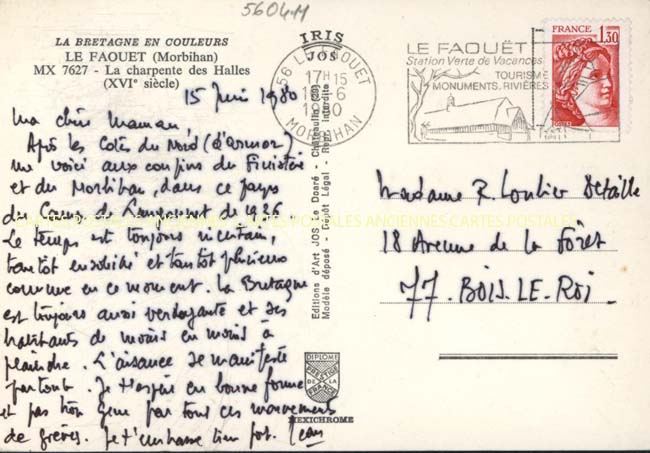 560411
IRIS
JOS
LA BRETAGNE EN COULEURS
LE FAOUET (Morbihan)
MX 7627 - La charpente des Halles
(XVIe siècle)
15 Juin 1980
Ma chère Maman,
Après les Côtes du Nord (d'armor)
me voici aux confins du Finistère
et du Morbihan, dans ce pays
de
Le temps est toujours incertain,
tantôt ensoleillé et tantôt pluvieux
comme en ce moment. La Bretagne
est toujours aussi verdoyante et ses
habitants de moins en moins à
plaindre. L'aisance se manifeste
partout. Je t'espère en bonne forme
et pas trop gênée par tous ces mouvements
de grèves. Je t'embrasse bien fort. Jean
Editions d'Art JOS Le Doaré - Châteaulin (29)
Modèle déposé - Dépôt Légal - Repr. interdite
DIPLOME
PRESTIGE
DE LA
FRANCE
MEXICHROME
56 LE FAOUET
17H15
1980
MORBIHAN
LE FAOUËT
Station Verte de Vacances
TOURISME
MONUMENTS, RIVIÈRES
FRANCE
1,30
Madame R. Loutier
18 Avenue de la Forêt
77. BOIS-LE-ROI
CARTES POSTALES ANCIENNES CARTES POSTALES